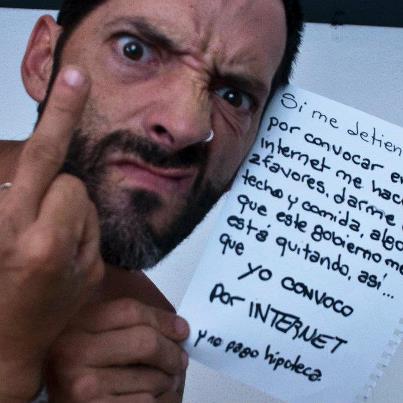 Si me detien
por convocar e
internet me hac
2 favores, darme
techo y comida, algo
que este gobierno me
está quitando, así...
que
yo convoco
por INTERNET
y no pago hipoteca.